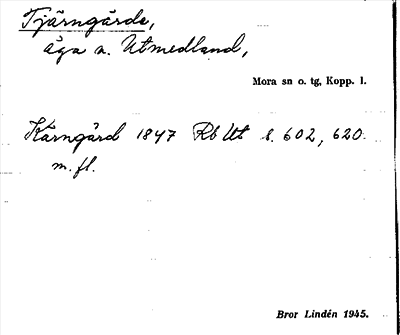 Tjärngårds,
äga a. Utmedland,
Mora sn o. tg, Kopp. l.
Kärngård 1847 Rb Ut s. 602, 620
m. fl.
Bror Lindén 1945.